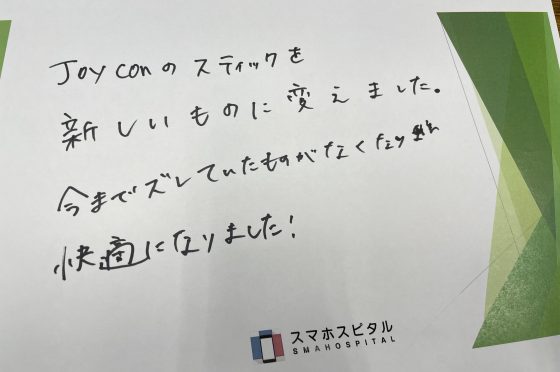 Joy conの スティックを
新しいものに変えました。
今までズレていたものがなくなり
快適になりました!
スマホスピタル
SMAHOSPITAL